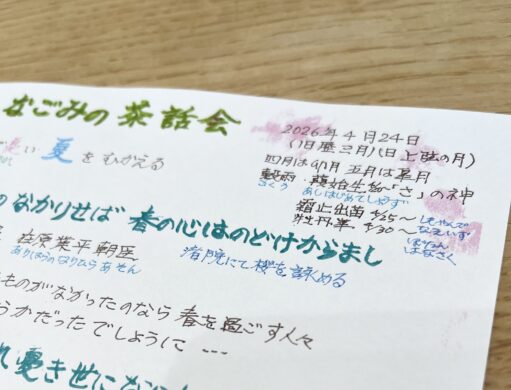 なごみの茶話会
2026年4月24日
(旧歴三月八日上弦の月)
い 夏 をむかえる
四月は卯月 五月は皐月
穀雨・葭始生 「さ」の神
こくう あしはじめてしょうず
霜止出苗 4/25〜 しもやんで なえいず
牡丹華 4/30〜 ぼたん はなさく
のなかりせば 春の心はのどけからまし
在原業平朝臣
ありわらのなりひらあそん
渚院にて桜を詠める
ものがなかったのなら 春を過ごす人々
うかだったでしょうに ---
れ憂き世にな